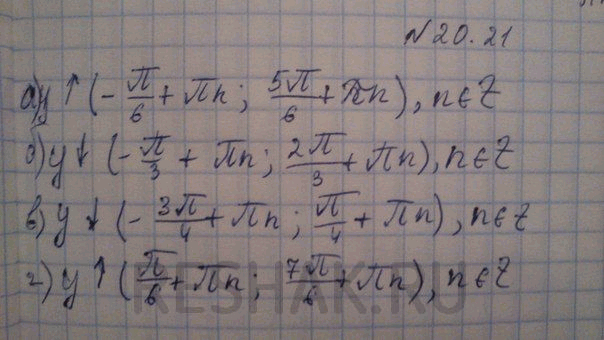 № 20.21
а) y ↑ (- π/6 + πn; 5π/6 + πn), n∈Z
б) y ↓ (- π/3 + πn; 2π/3 + πn), n∈Z
в) y ↓ (- 3π/4 + πn; π/4 + πn), n∈Z
г) y ↑ (π/6 + πn; 7π/6 + πn), n∈Z
RESHAK.RU